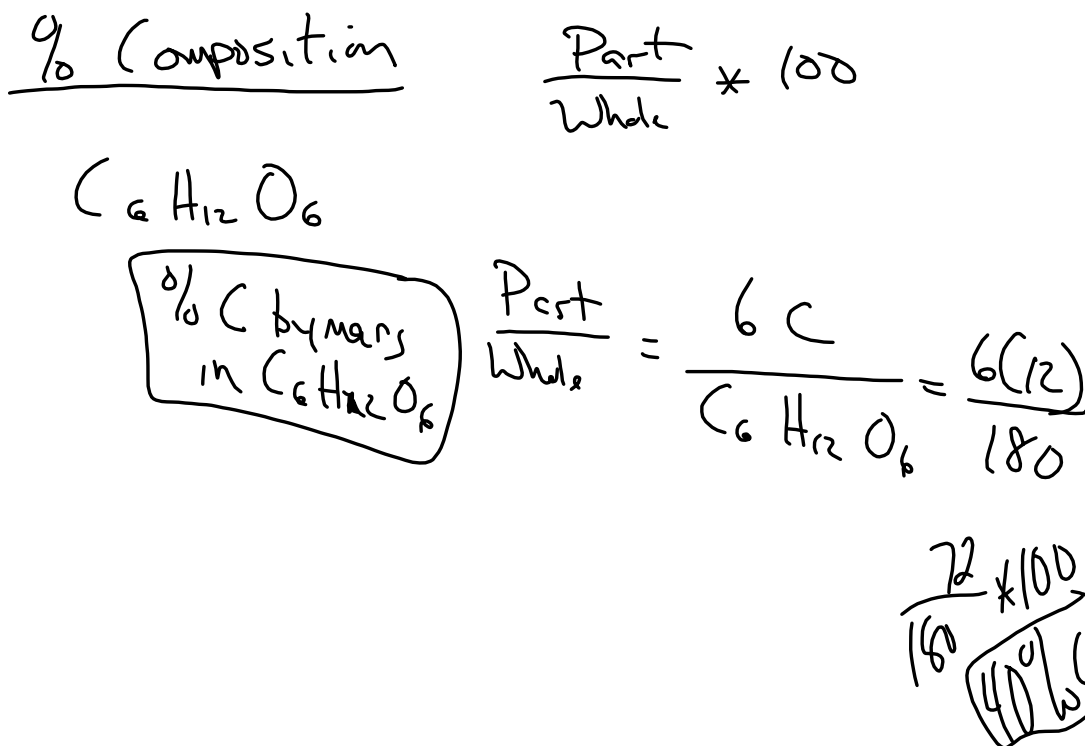 % Composition
Part
Whole
* 100
C6 H12 O6
% C by mass
in C6 H12 O6
Part
Whole
=
6 C
C6 H12 O6
=
6(12)
180
72
180
*100
40%